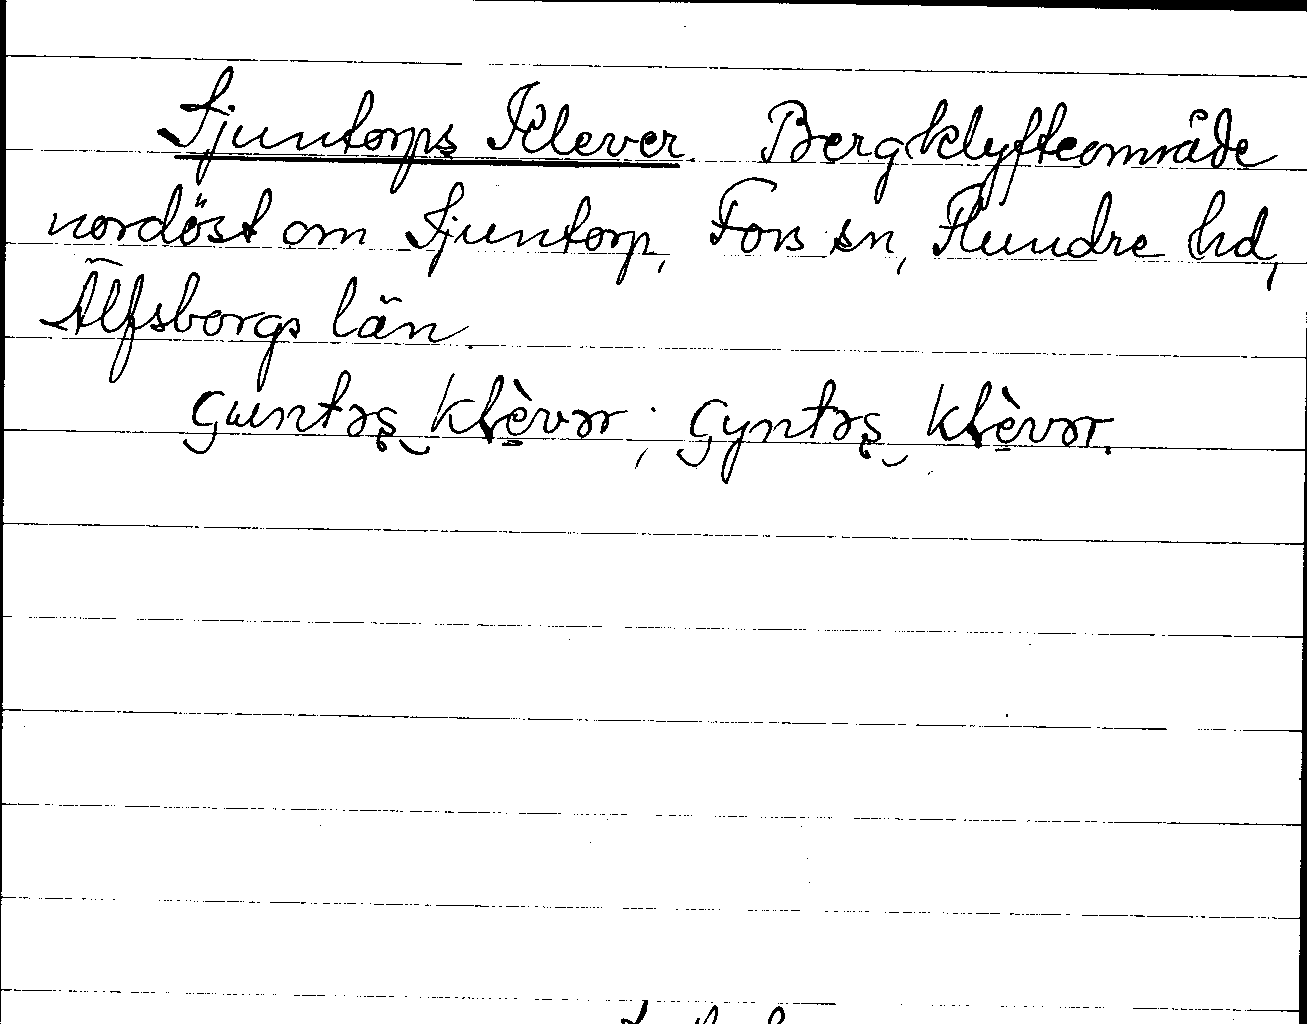 Sjuntorps Klever. Bergklyfteområde
nordöst om Sjuntorp, Fors sn, Flundre hd,
Älfsborgs län.
ɕuntəʂ‿klèvər; ɕyntəʂ‿klèvər.